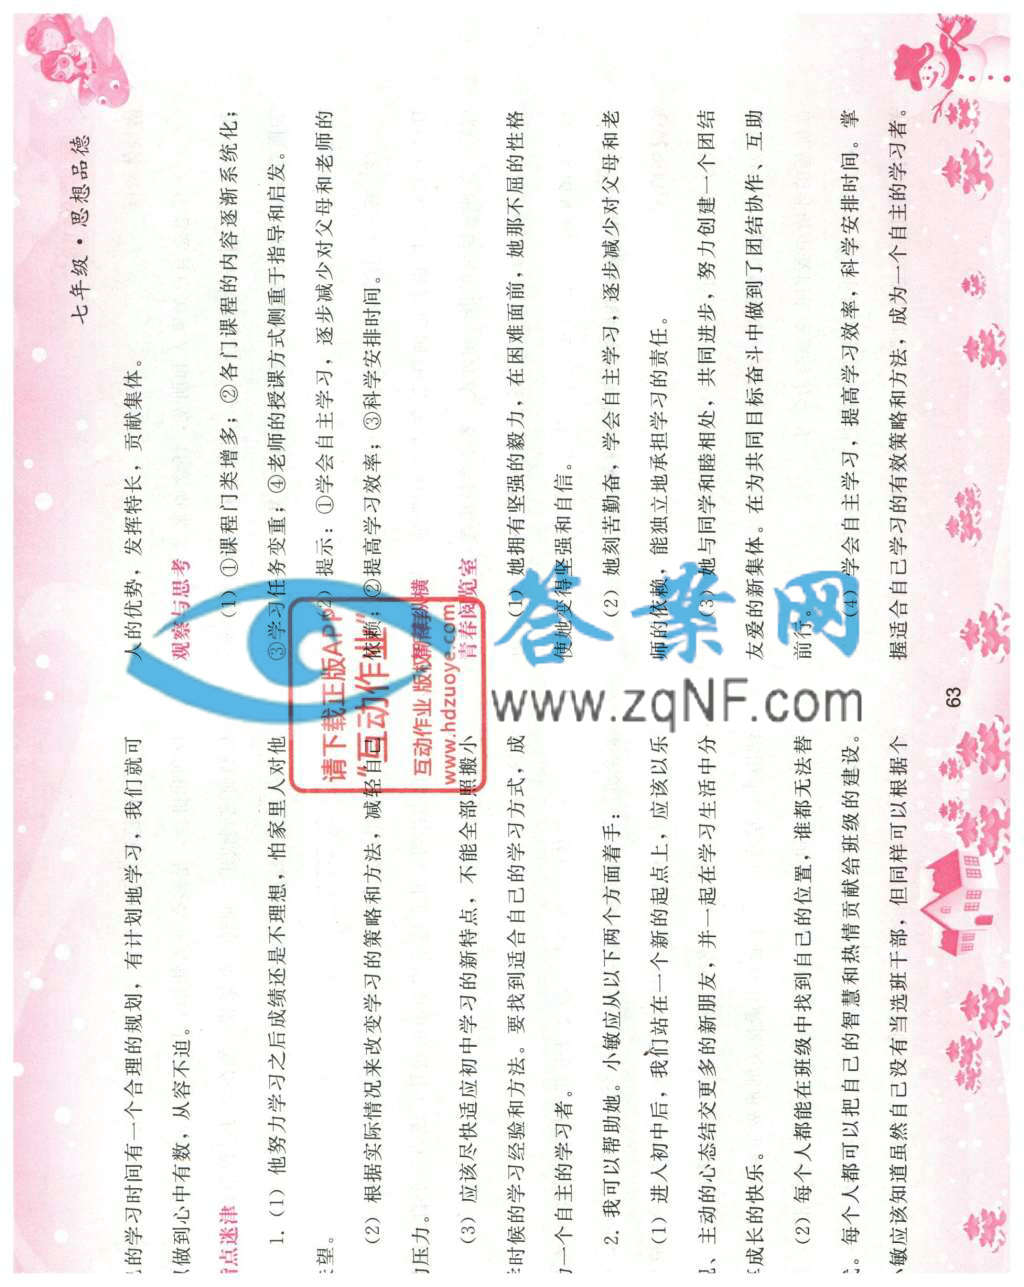 七年级·思想品德
的学习时间有一个合理的规划，有计划地学习，我们就可
做到心中有数，从容不迫。
点迷津
1.（1）他努力学习之后成绩还是不理想，怕家里人对他
望。
（2）根据实际情况来改变学习的策略和方法，减轻自己
压力。
（3）应该尽快适应初中学习的新特点，不能全部照搬小
时候的学习经验和方法。要找到适合自己的学习方式，成
一个自主的学习者。
2. 我可以帮助她。小敏应从以下两个方面着手：
（1）进入初中后，我们站在一个新的起点上，应该以乐
、主动的心态结交更多的新朋友，并一起在学习生活中分
成长的快乐。
（2）每个人都能在班级中找到自己的位置，谁都无法替
。每个人都可以把自己的智慧和热情贡献给班级的建设。
敏应该知道虽然自己没有当选班干部，但同样可以根据个
人的优势，发挥特长，贡献集体。
观察与思考
（1）①课程门类增多；②各门课程的内容逐渐系统化；
③学习任务变重；④老师的授课方式侧重于指导和启发。
（2）提示：①学会自主学习，逐步减少对父母和老师的
依赖；②提高学习效率；③科学安排时间。
青春阅览室
（1）她拥有坚强的毅力，在困难面前，她那不屈的性格
使她变得坚强和自信。
（2）她刻苦勤奋，学会自主学习，逐步减少对父母和老
师的依赖，能独立地承担学习的责任。
（3）她与同学和睦相处，共同进步，努力创建一个团结
友爱的新集体。在为共同目标奋斗中做到了团结协作、互助
前行。
（4）学会自主学习，提高学习效率，科学安排时间。掌
握适合自己学习的有效策略和方法，成为一个自主的学习者。
63
请下载正版APP
“互动作业”
互动作业 版权所有
www.hdzuoye.com
答案网
www.zqNF.com